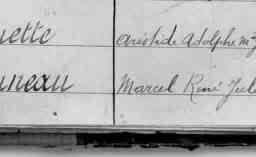 uette Aristide Adolphe M
uneau Marcel René Jul